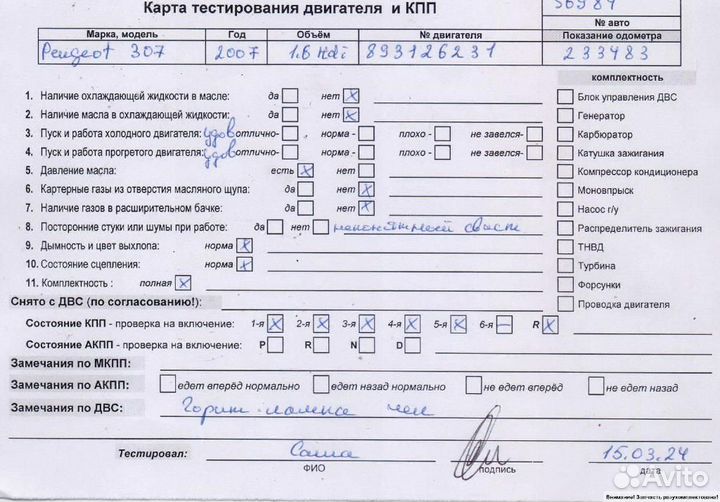 Карта тестирования двигателя и КПП
№ авто
Марка, модель Год Объём № двигателя Показание одометра
Peugeot 307 2007 1.6 Hdi 893126231 233483
комплектность
1. Наличие охлаждающей жидкости в масле: да нет X Блок управления ДВС
2. Наличие масла в охлаждающей жидкости: да нет X Генератор
3. Пуск и работа холодного двигателя: удов отлично- норма - плохо - не завелся- Карбюратор
4. Пуск и работа прогретого двигателя: удов отлично- норма - плохо - не завелся- Катушка зажигания
5. Давление масла: есть X нет Компрессор кондиционера
6. Картерные газы из отверстия масляного щупа: да нет X Моновпрыск
7. Наличие газов в расширительном бачке: да нет X Насос г/у
8. Посторонние стуки или шумы при работе: да нет непонятный свист Распределитель зажигания
9. Дымность и цвет выхлопа: норма X ТНВД
10. Состояние сцепления: норма X Турбина
11. Комплектность : полная X Форсунки
Снято с ДВС (по согласованию!): Проводка двигателя
Состояние КПП - проверка на включение: 1-я X 2-я X 3-я X 4-я X 5-я X 6-я — R X
Состояние АКПП - проверка на включение: P R N D
Замечания по МКПП:
Замечания по АКПП: едет вперёд нормально едет назад нормально не едет вперёд не едет назад
Замечания по ДВС: Горит лампа чек
Тестировал: Саша 15.03.24
ФИО подпись дата
Avito
Внимание! Запчасть разукомплектована!